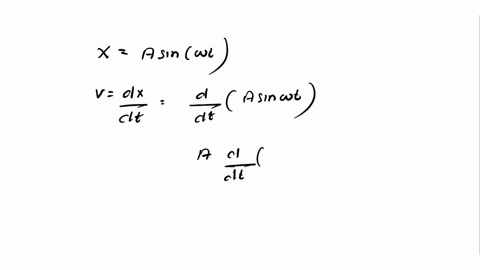 x = A sin(ωt)
v = dx/dt = d/dt (A sin ωt)
A d/dt (